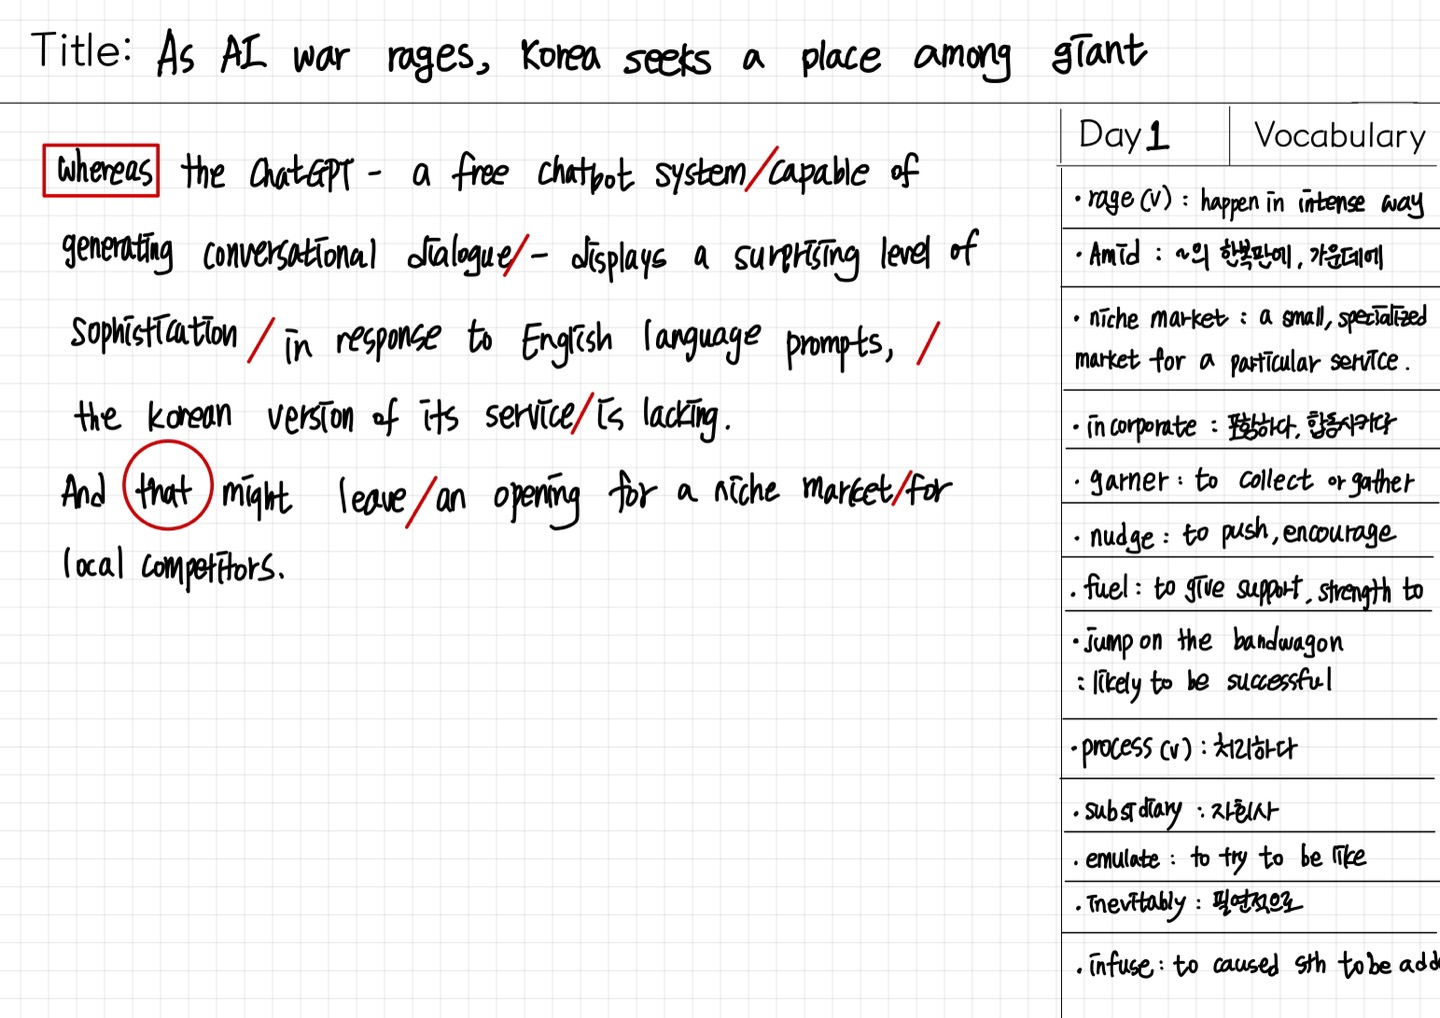 Title: As AI war rages, Korea seeks a place among giant
whereas the ChatGPT - a free chatbot system/capable of
generating conversational dialogue/ - displays a surprising level of
Sophistication / in response to English language prompts, /
the korean version of its service/is lacking.
And that might leave/an opening for a niche market/for
local competitors.
Day 1 Vocabulary
· rage (v) : happen in intense way
· Amid : ~의 한복판에, 가운데에
· niche market : a small, specialized
market for a particular service.
· incorporate : 포함하다, 합동시키다
· garner : to collect or gather
· nudge : to push, encourage
· fuel : to give support, strength to
· jump on the bandwagon
: likely to be successful
· process (v) : 처리하다
· subsidiary : 자회사
· emulate : to try to be like
· inevitably : 필연적으로
· infuse : to caused sth to be adde